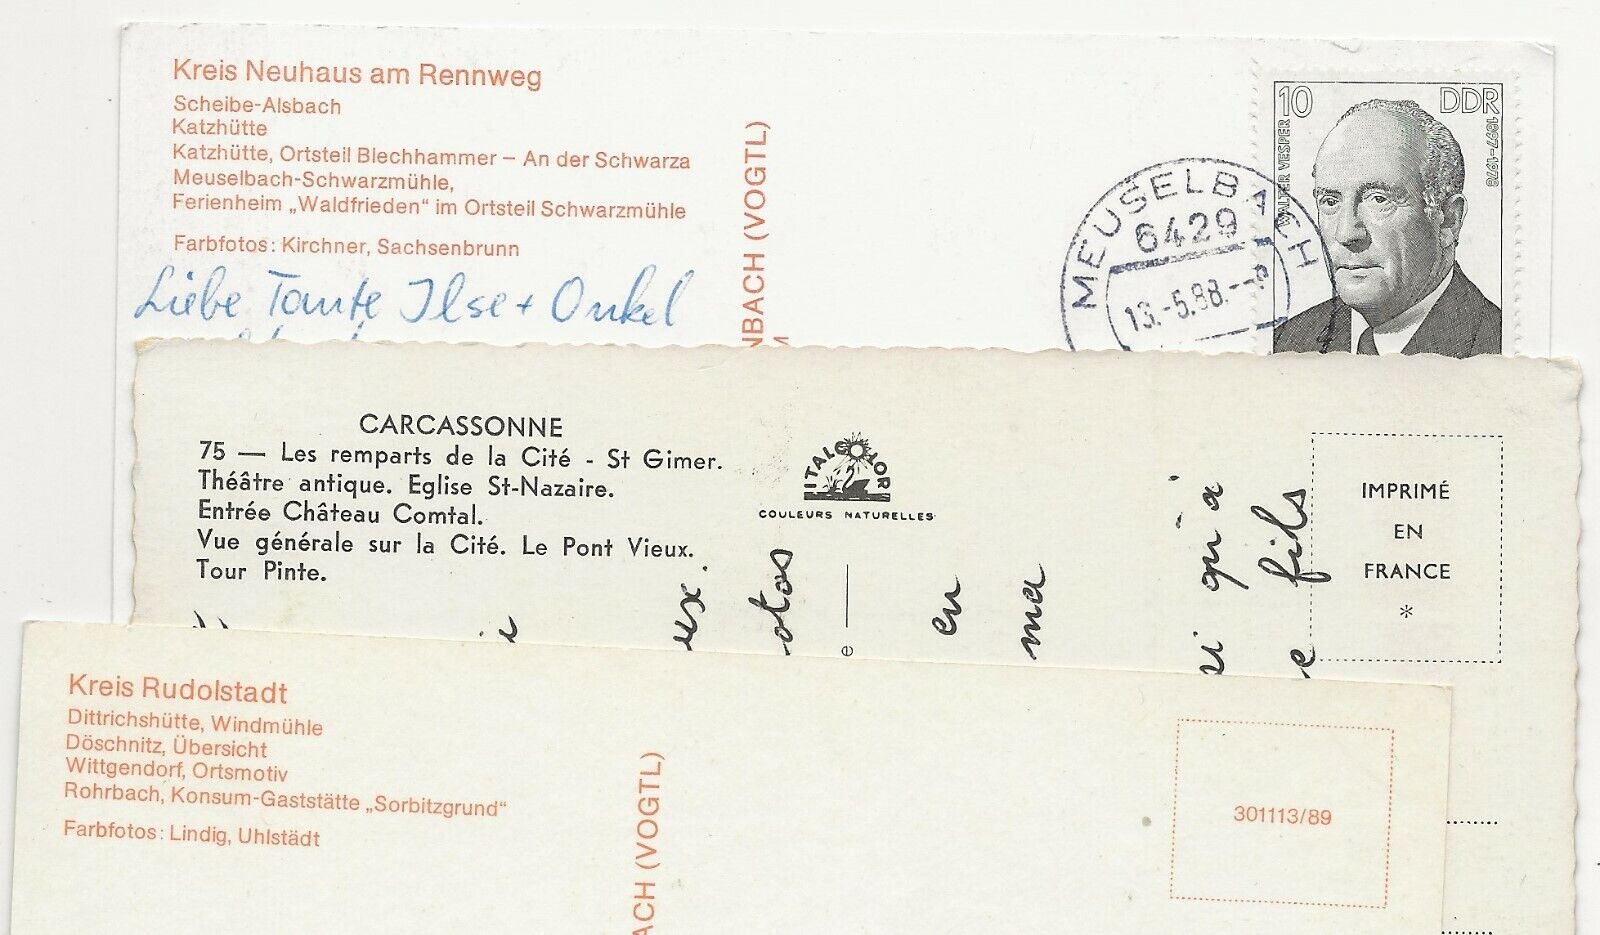 Kreis Neuhaus am Rennweg
Scheibe-Alsbach
Katzhütte
Katzhütte, Ortsteil Blechhammer – An der Schwarza
Meuselbach-Schwarzmühle,
Ferienheim „Waldfrieden“ im Ortsteil Schwarzmühle
Farbfotos: Kirchner, Sachsenbrunn
Liebe Tante Ilse + Onkel
NBACH (VOGTL)
MEUSELBACH
6429
13.-5.88.--8
10 DDR
WALTER VESPER
1897-1978
CARCASSONNE
75 — Les remparts de la Cité - St Gimer.
Théâtre antique. Eglise St-Nazaire.
Entrée Château Comtal.
Vue générale sur la Cité. Le Pont Vieux.
Tour Pinte.
ITALCOLOR
COULEURS NATURELLES
IMPRIMÉ
EN
FRANCE
*
ux.
otos
e
en
ma
si qu'à
e fils
Kreis Rudolstadt
Dittrichshütte, Windmühle
Döschnitz, Übersicht
Wittgendorf, Ortsmotiv
Rohrbach, Konsum-Gaststätte „Sorbitzgrund“
Farbfotos: Lindig, Uhlstädt
ACH (VOGTL)
301113/89